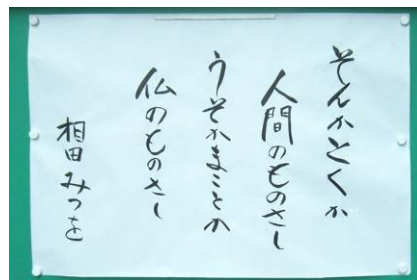 そんかとくか
人間のものさし
うそかまことか
仏のものさし
相田みつを